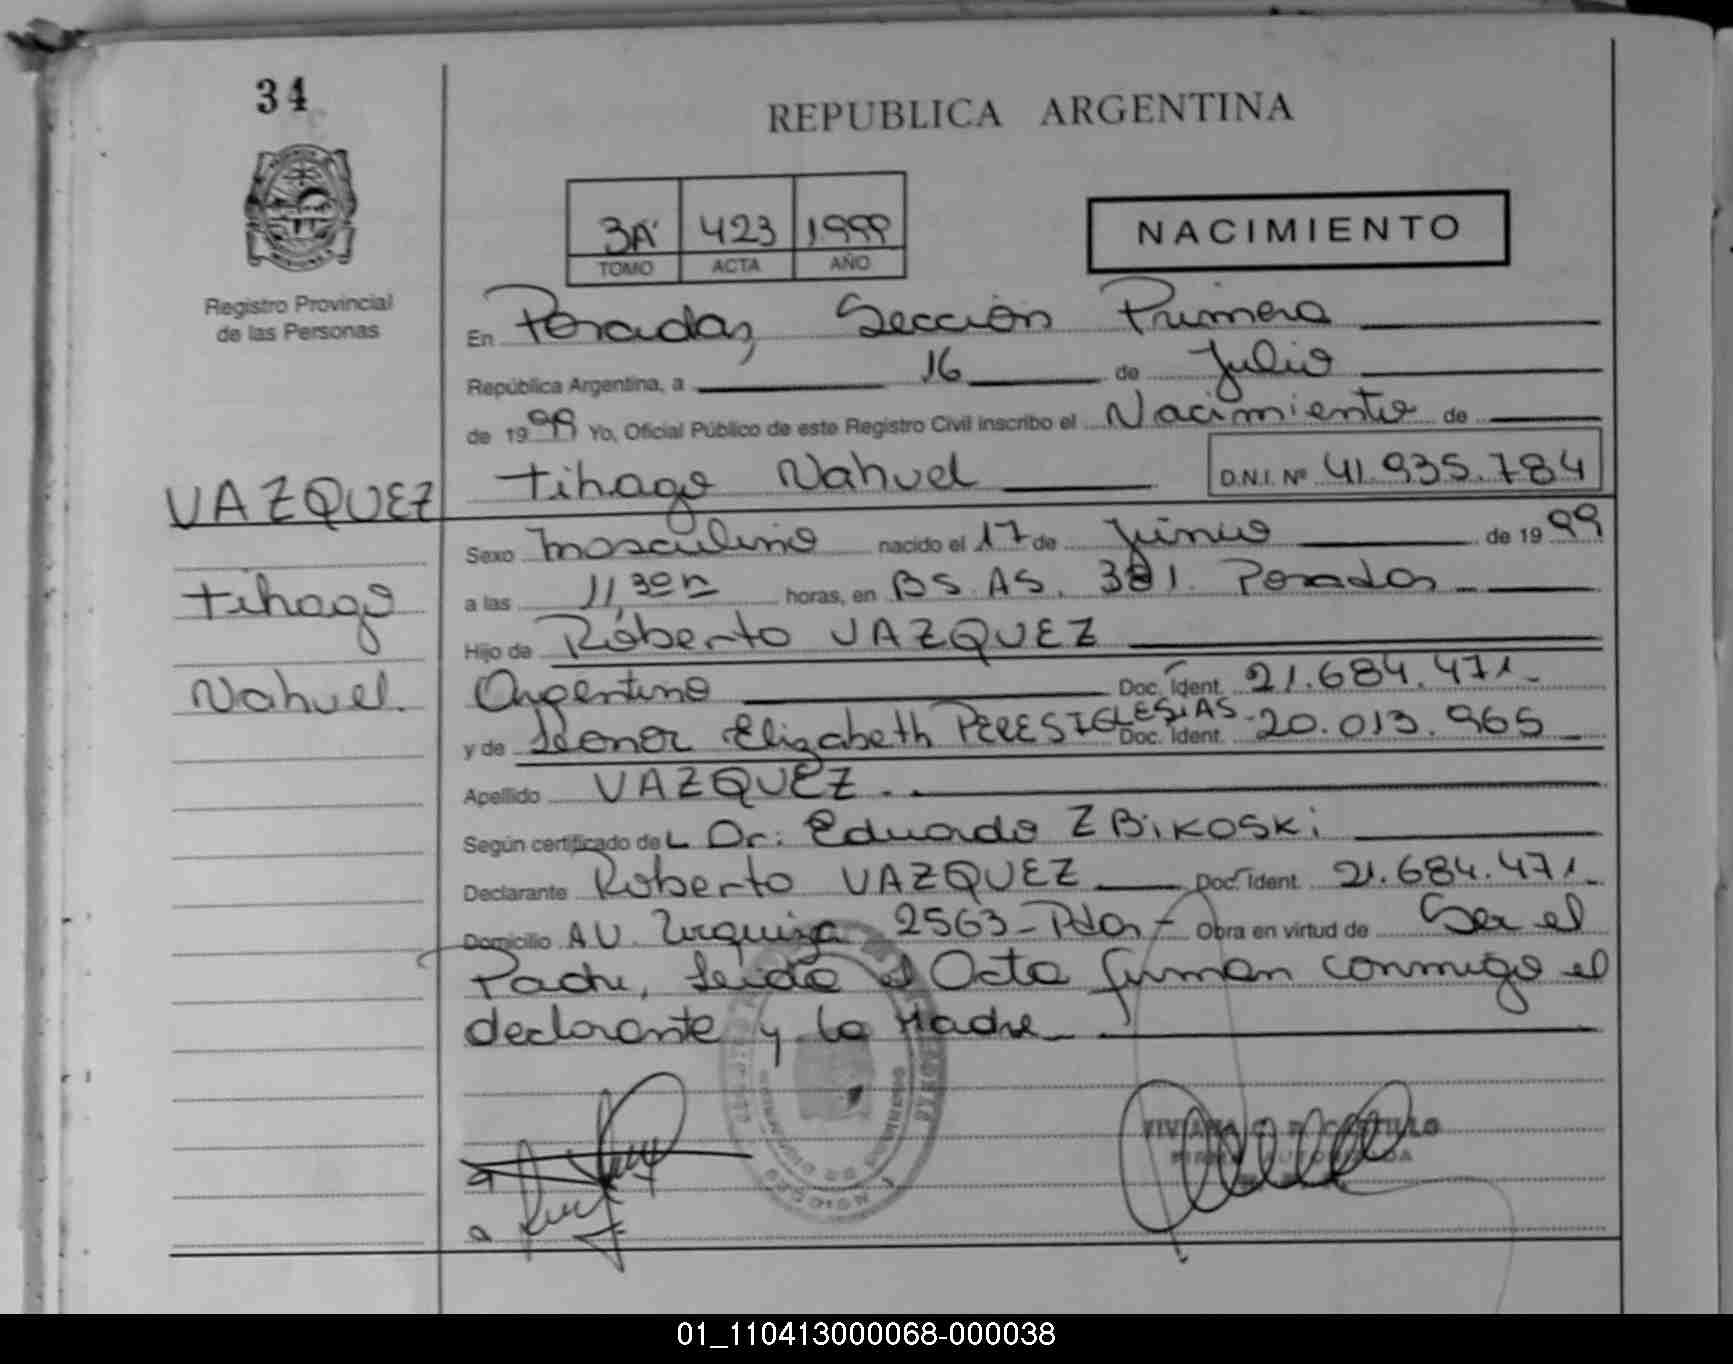 34
REPUBLICA ARGENTINA
3A 423 1999
TOMO ACTA AÑO
NACIMIENTO
Registro Provincial
de las Personas
En Posadas, Sección Primera
República Argentina, a 16 de Julio
de 1999 Yo, Oficial Público de este Registro Civil inscribo el Nacimiento de
VAZQUEZ
Tihago Nahuel D.N.I. Nº 41.935.784
Sexo masculino nacido el 17 de Junio de 1999
Tihago
a las 11,30 horas, en BS. AS. 381. Posadas
Hijo de Roberto VAZQUEZ
Nahuel.
Argentino Doc. Ident. 21.684.471
y de Leonor Elizabeth PERES IGLESIAS Doc. Ident. 20.013.965
Apellido VAZQUEZ.
Según certificado del Dr: Eduardo ZBIKOSKI
Declarante Roberto VAZQUEZ Doc. Ident. 21.684.471
Domicilio AV. Urquiza 2563 - Pdas - Obra en virtud de Ser el
Padre, Leida el Acta firman conmigo el
declarante y la Madre
VIVIANA CASTILLO
FIRMA AUTORIZADA
01_110413000068-000038